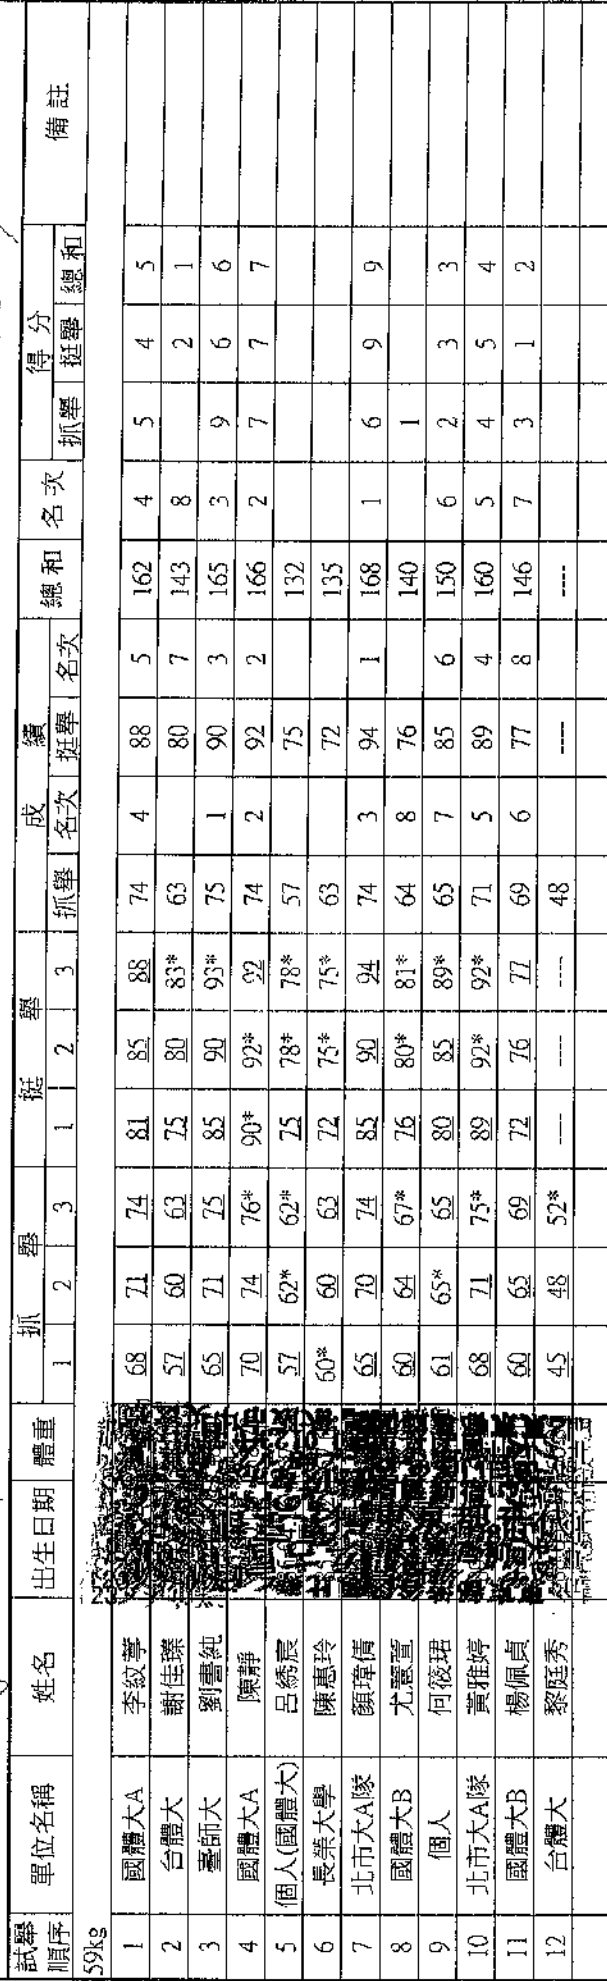 試舉順序 單位名稱 姓名 出生日期 體重 抓舉 挺舉 成績 總和 名次 得分 備註
1 2 3 1 2 3 抓舉 名次 挺舉 名次 抓舉 挺舉 總和
59kg
1 國體大A 李紋葶 68 71 74 81 85 88 74 4 88 5 162 4 5 4 5
2 台體大 謝佳臻 57 60 63 75 80 83* 63 80 7 143 8 2 1
3 臺師大 劉書純 65 71 75 85 90 93* 75 1 90 3 165 3 9 6 6
4 國體大A 陳靜 70 74 76* 90* 92* 92 74 2 92 2 166 2 7 7 7
5 個人(國體大) 呂綉宸 57 62* 62* 75 78* 78* 57 75 132
6 長榮大學 陳惠玲 60* 60 63 72 75* 75* 63 72 135
7 北市大A隊 顏瑋倩 65 70 74 85 90 94 74 3 94 1 168 1 6 9 9
8 國體大B 尤 60 64 67* 76 80* 81* 64 8 76 140 1
9 個人 何筱珺 61 65* 65 80 85 89* 65 7 85 6 150 6 2 3 3
10 北市大A隊 黃雅婷 68 71 75* 89 92* 92* 71 5 89 4 160 5 4 5 4
11 國體大B 楊佩貞 60 65 69 72 76 77 69 6 77 8 146 7 3 1 2
12 台體大 黎庭秀 45 48 52* ---- ---- ---- 48 ---- ----